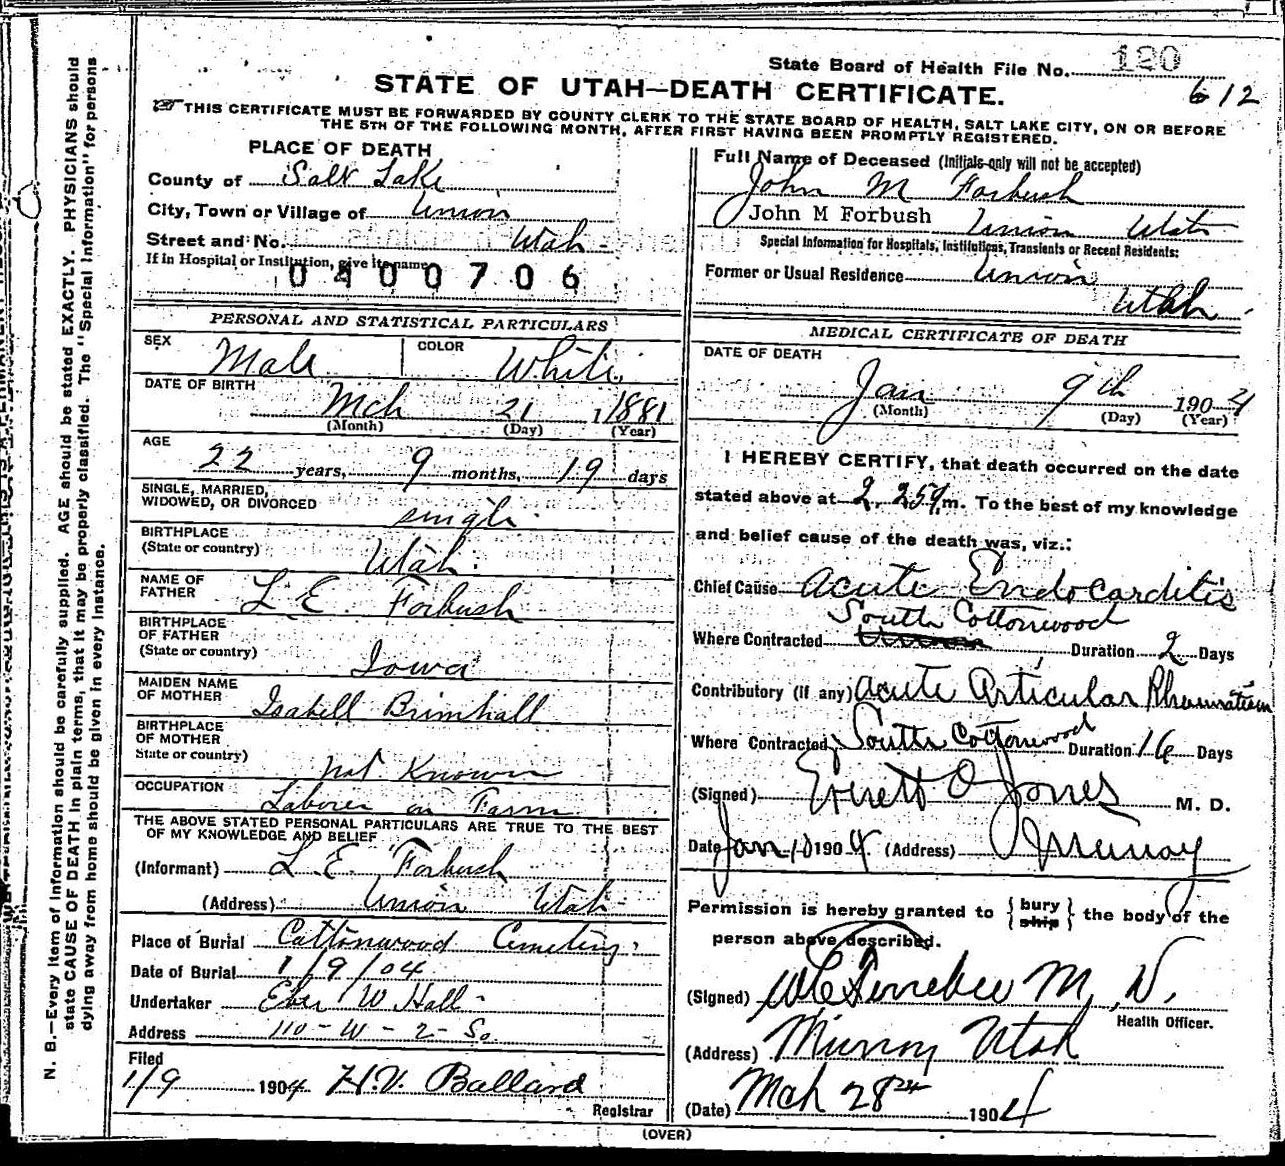 State Board of Health File No. 120
612
STATE OF UTAH—DEATH CERTIFICATE.
THIS CERTIFICATE MUST BE FORWARDED BY COUNTY CLERK TO THE STATE BOARD OF HEALTH, SALT LAKE CITY, ON OR BEFORE
THE 5TH OF THE FOLLOWING MONTH, AFTER FIRST HAVING BEEN PROMPTLY REGISTERED.
PLACE OF DEATH
County of Salt Lake
City, Town or Village of Union
Street and No. Utah
If in Hospital or Institution, give its name
0400706
Full Name of Deceased (Initials only will not be accepted)
John M Forbush
John M Forbush Union Utah
Special Information for Hospitals, Institutions, Transients or Recent Residents:
Former or Usual Residence Union
Utah
PERSONAL AND STATISTICAL PARTICULARS
SEX Male COLOR White
DATE OF BIRTH
Mch 21 1881
(Month) (Day) (Year)
AGE
22 years, 9 months, 19 days
SINGLE, MARRIED,
WIDOWED, OR DIVORCED single
BIRTHPLACE
(State or country) Utah
NAME OF
FATHER L E Forbush
BIRTHPLACE
OF FATHER
(State or country) Iowa
MAIDEN NAME
OF MOTHER Isabell Brimhall
BIRTHPLACE
OF MOTHER
State or country) Not Known
OCCUPATION Laborer on Farm
THE ABOVE STATED PERSONAL PARTICULARS ARE TRUE TO THE BEST
OF MY KNOWLEDGE AND BELIEF
(Informant) L. E. Forbush
(Address) Union Utah
Place of Burial Cottonwood Cemetery
Date of Burial 1/9/04
Undertaker Eber W Hall
Address 110-W-2-So.
Filed
1/9 1904 H.V. Ballard
Registrar
MEDICAL CERTIFICATE OF DEATH
DATE OF DEATH
Jan 9th 1904
(Month) (Day) (Year)
I HEREBY CERTIFY, that death occurred on the date
stated above at m. To the best of my knowledge
and belief cause of the death was, viz.:
Chief Cause Acute Endocarditis
South Cottonwood
Where Contracted Union Duration 2 Days
Contributory (if any) Acute Articular Rheumatism
Where Contracted South Cottonwood Duration 16 Days
(Signed) Everett O Jones M. D.
Date Jan 10 1904 (Address) Murray
Permission is hereby granted to { bury ship } the body of the
person above described.
(Signed) M. D.
Health Officer.
(Address) Murray Utah
(Date) Mch 28 1904
(OVER)
N. B.—Every item of information should be carefully supplied. AGE should be stated EXACTLY. PHYSICIANS should
state CAUSE OF DEATH in plain terms, that it may be properly classified. The "Special Information" for persons
dying away from home should be given in every instance.